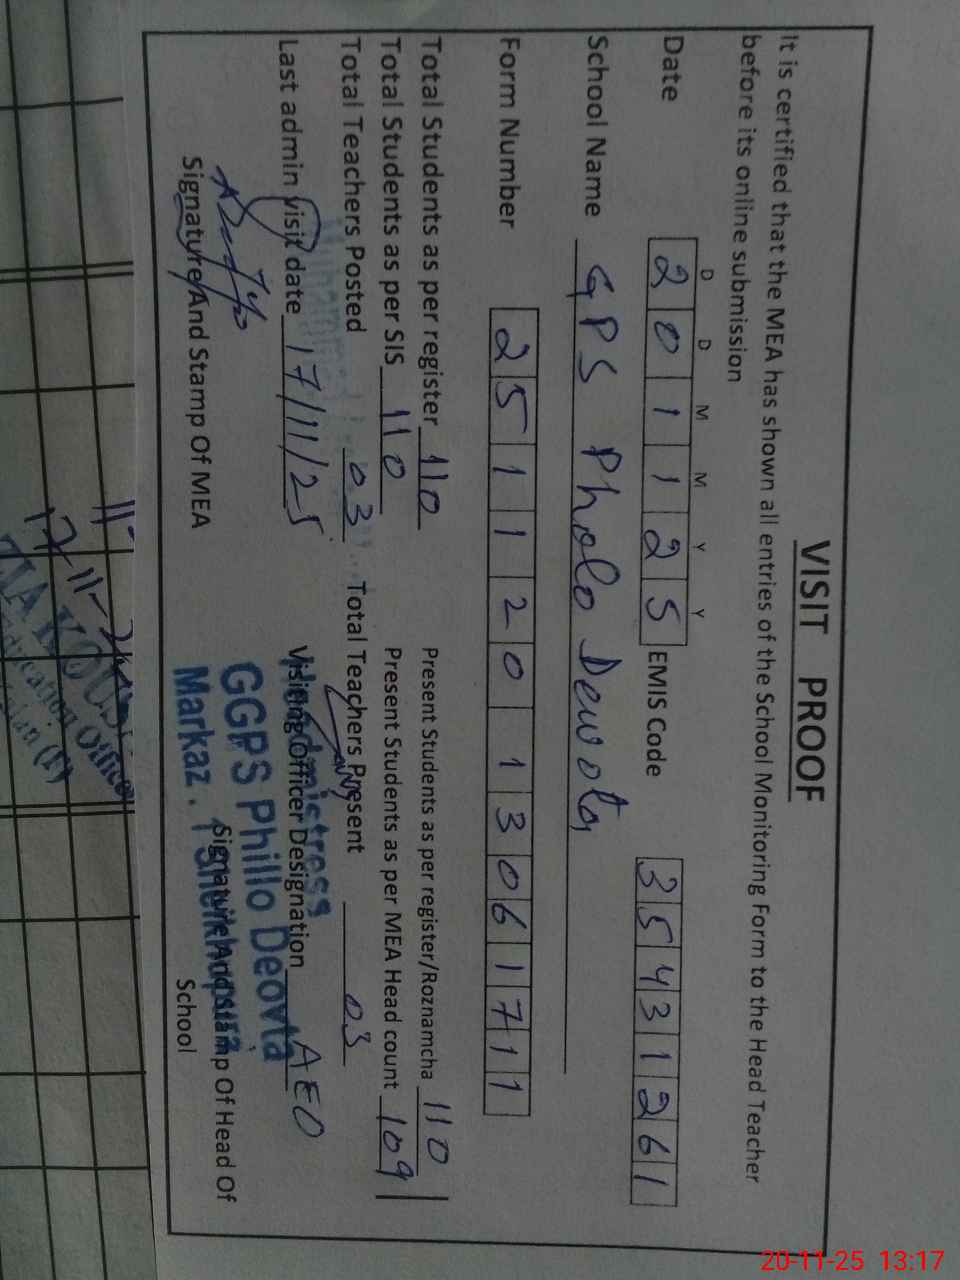 VISIT PROOF
It is certified that the MEA has shown all entries of the School Monitoring Form to the Head Teacher
before its online submission
D D M M Y Y
Date 2 0 1 1 2 5 EMIS Code 3 5 4 3 1 2 6 1
School Name GPS Pholo Dewota
Form Number 2 5 1 1 2 0 1 3 0 6 1 7 1 1
Total Students as per register 110 Present Students as per register/Roznamcha 110
Total Students as per SIS 110 Present Students as per MEA Head count 109
Total Teachers Posted 03 Total Teachers Present 03
Last admin visit date 17/11/25 Visiting Officer Designation AEO
Headmistress
GGPS Phillo Deovta
Markaz . 1
Signature And Stamp Of MEA Signature And Stamp Of Head Of
School
20-11-25 13:17